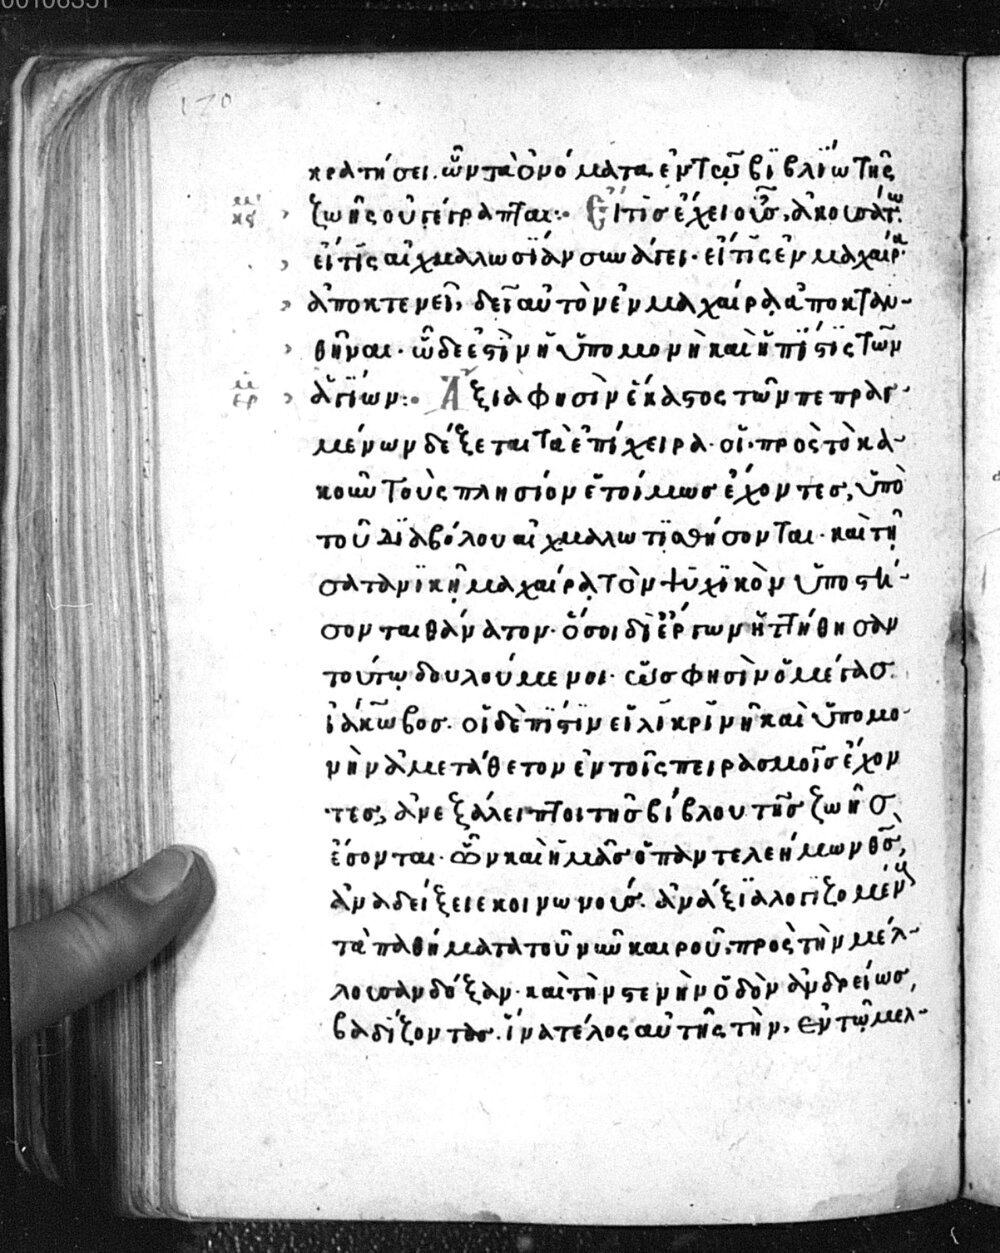 00106351
120
κρατήσει. ὧν τὰ ὀνόματα ἐν τῷ βϊβλΐω τῆς
κϛ ζωῆς οὐ γέγραπται:· Εἴ τισ ἔχει οὖσ, ἀκουσάτω
εἴ τὶς αἰχμαλωσΐαν συνάγει· εἴ τὶς ἐν μαχαίρα
ἀποκτενεῖ, δεῖ αὐτὸν ἐν μαχαίρᾳ ἀποκταν-
θῆναι· ὧδε ἐστὶν ἡ ὑπομονὴ καὶ ἡ πΐστϊς τῶν
ἑρ ἁγΐων:· Ἄξια φησὶν ἕκαστος τῶν πεπραγ-
μένων δέξεται τὰ ἐπίχειρα· οἵ, πρὸς τὸ κα-
κοῦν τοὺς πλησίον ἑτοίμωσ ἔχοντεσ, ὑπὸ
τοῦ διαβόλου αἰχμαλωτϊσθήσονται· καὶ τῇ
σατανϊκῇ μαχαίρᾳ τὸν ψυχϊκὸν ὑποστή-
σονται θάνατον· ὅσοι δι' ἔργων ἡττήθησαν
τούτῳ δουλούμενοι· ὥσ φησὶν ὁ μέγασ
ἰάκωβοσ. οἱ δὲ πΐστϊν εἰλϊκρινῆ καὶ ὑπομο-
νὴν ἀμετάθετον ἐν τοῖς πειρασμοῖσ ἔχον
τεσ, ἀνεξάλειπτοι τῆσ βίβλου τῆσ ζωῆσ
ἔσονται. ὧν καὶ ἡμᾶσ ὁ παντελεήμων θσ,
ἀναδείξειε κοινωνούσ. ἀνάξϊα λογϊζομένους
τὰ παθήματα τοῦ νῦν καιροῦ, πρὸς τὴν μέλ-
λουσαν δόξαν· καὶ τὴν στενὴν ὁδὸν ἀνδρείωσ,
βαδϊζοντασ. ἵνα τέλος αὐτῆς τὴν, ἐν τῷ μελ-